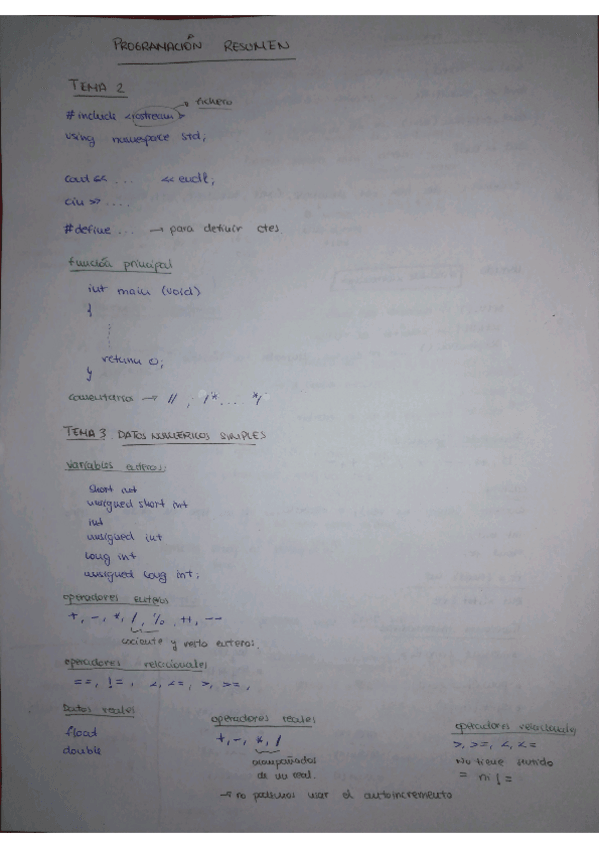 PROGRAMACIÓN RESUMEN
TEMA 2
#include <iostream> → fichero
using namespace std;
cout << .... << endl;
cin >> ....
#define ... → para definir ctes.
función principal
int main (void)
{
return 0;
}
comentarios → // ; /* ... */
TEMA 3. DATOS NUMÉRICOS SIMPLES
variables enteros:
short int
unsigned short int
int
unsigned int
long int
unsigned long int;
operadores enteros
+, -, *, /, %, ++, --
cociente y resto enteros.
operadores relacionales
==, !=, <, <=, >, >=,
Datos reales
float
double
operadores reales
+, -, *, /
acompañados
de un real.
→ no podemos usar el autoincremento
operadores relacionales
>, >=, <, <=
No tiene sentido
= ni !=